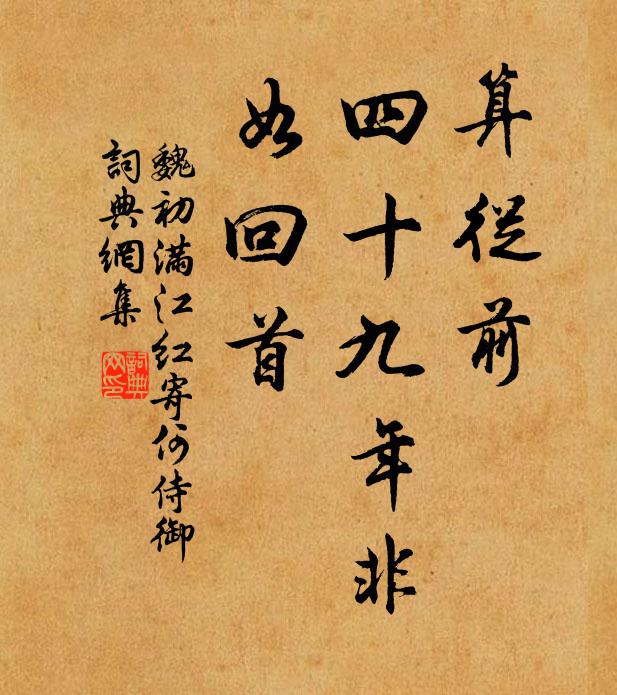 算從前
四十九年非
如回首
魏初滿江紅寄何侍御
詞典網集
詞典
網印